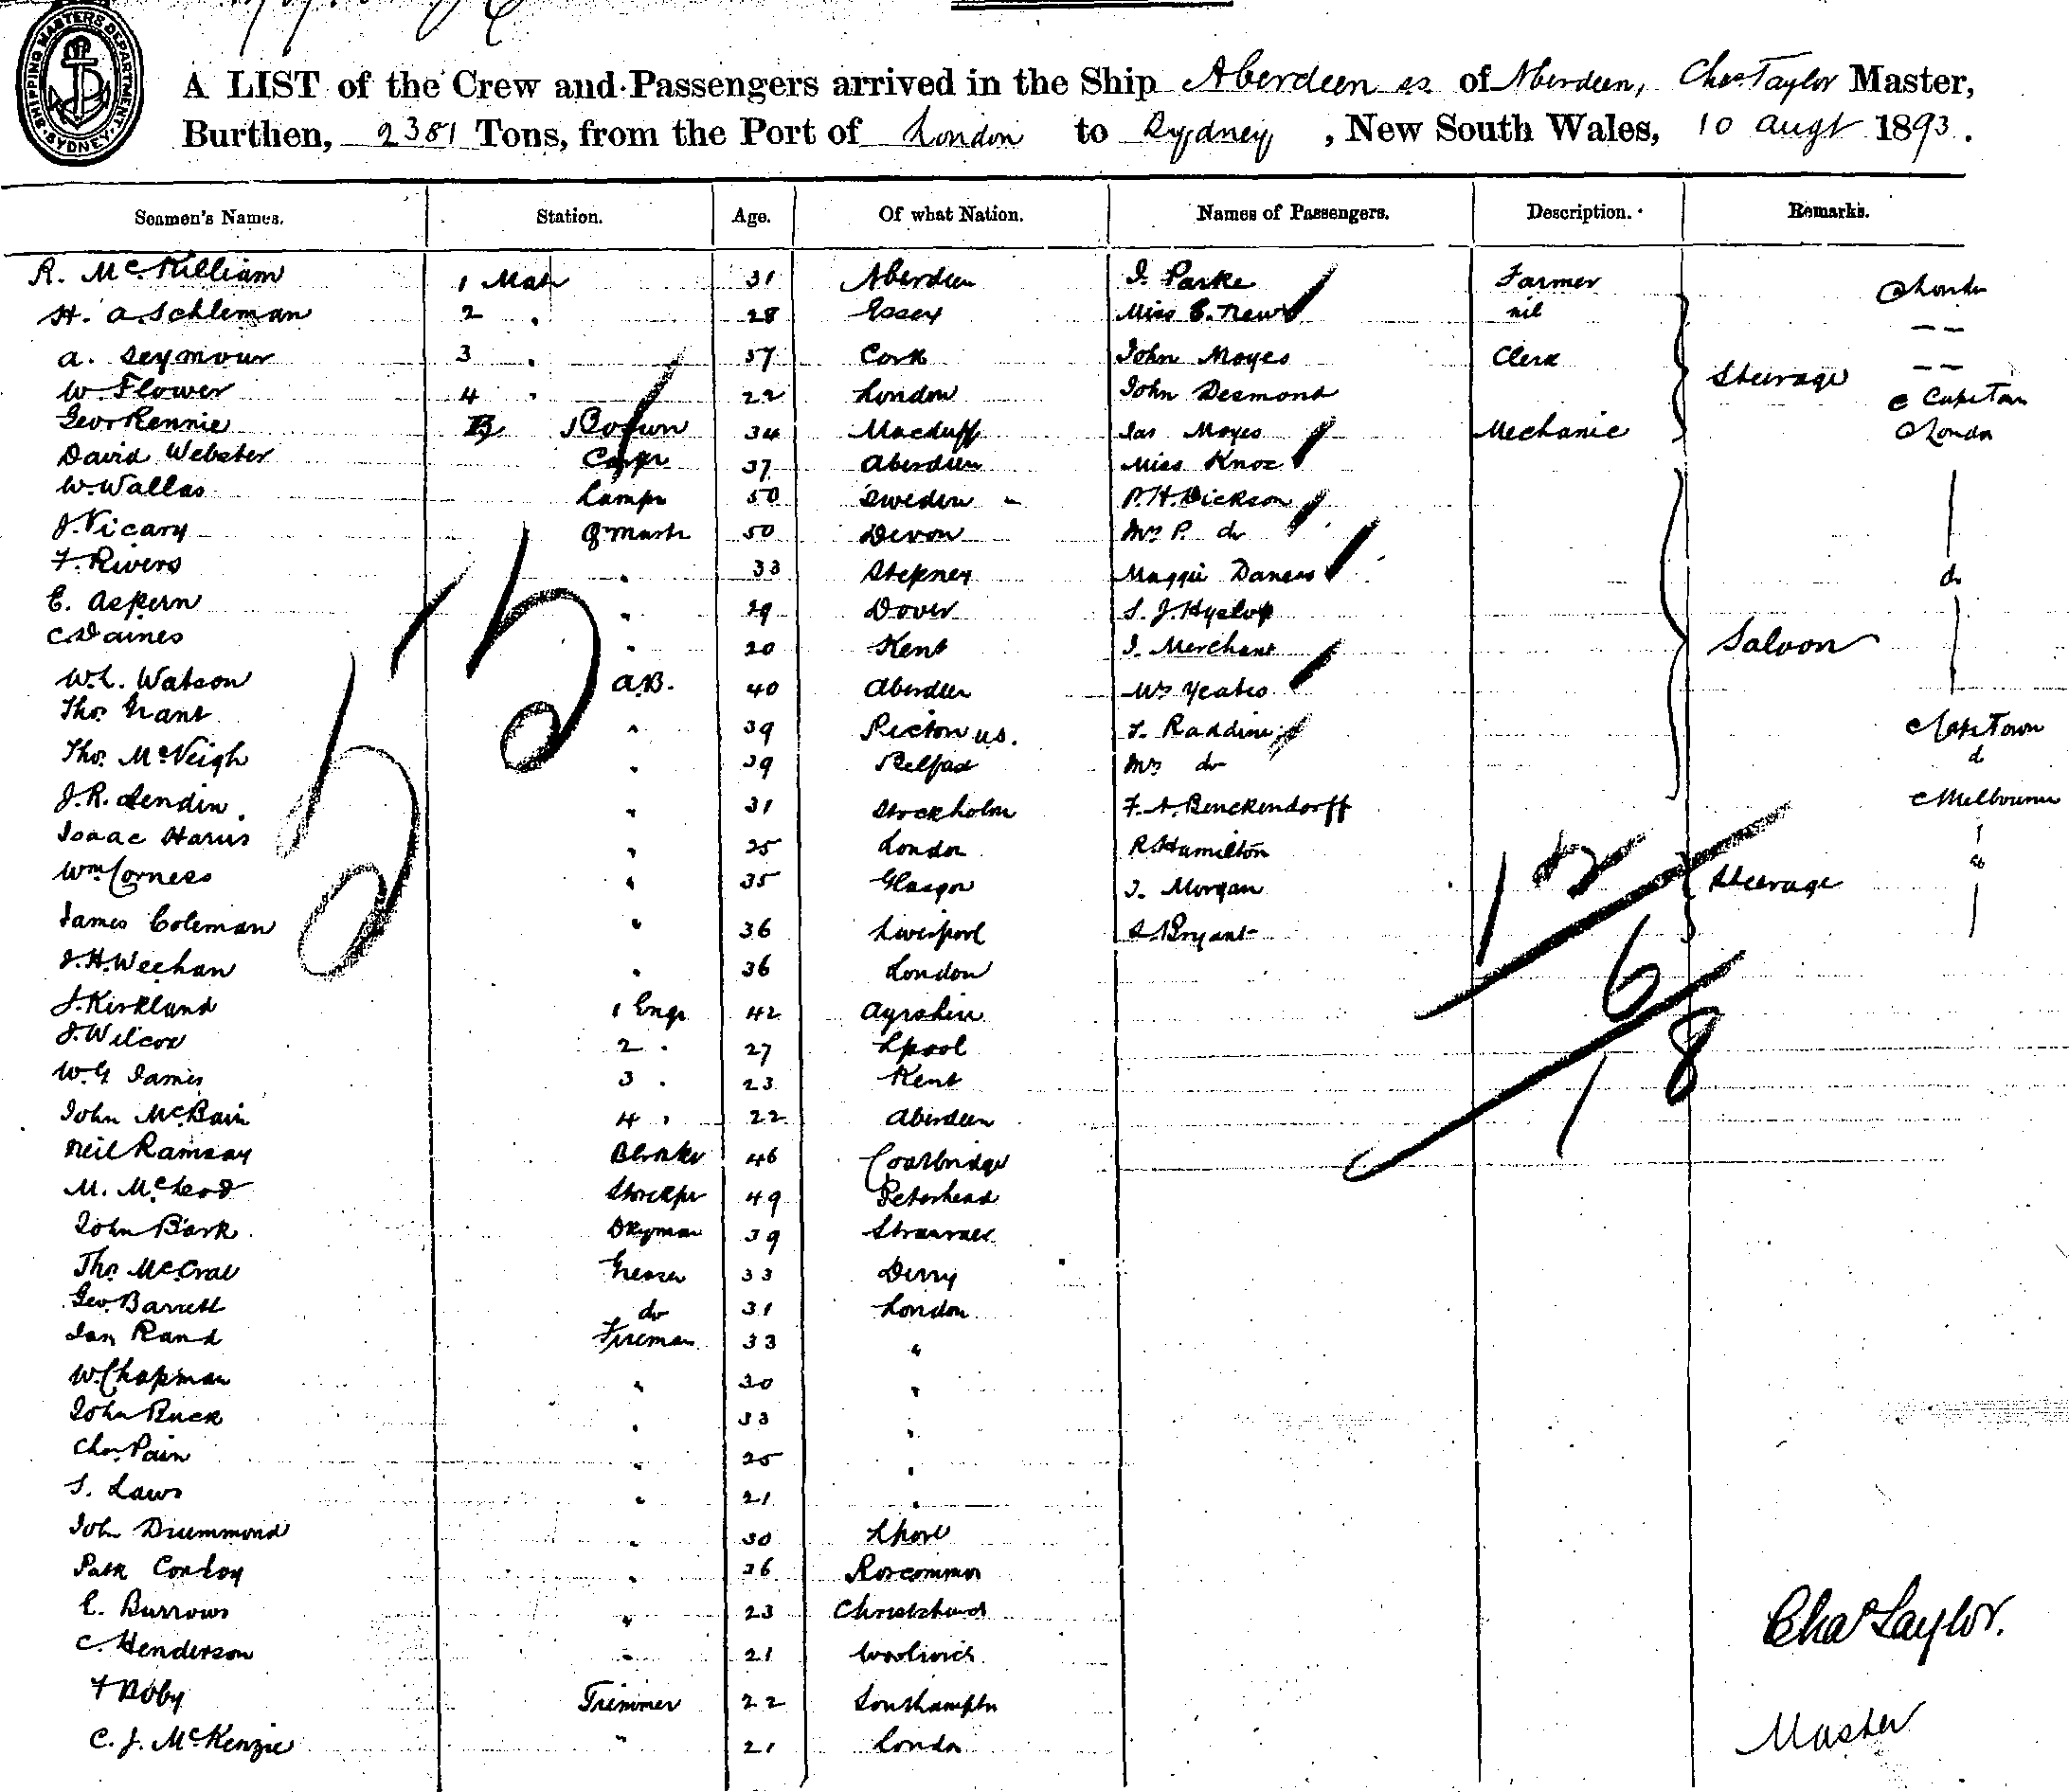 SHIPPING MASTERS DEPARTMENT SYDNEY
A LIST of the Crew and Passengers arrived in the Ship Aberdeen ss of Aberdeen, Chas Taylor Master,
Burthen, 2381 Tons, from the Port of London to Sydney, New South Wales, 10 augt 1893.
Seamen's Names. Station. Age. Of what Nation. Names of Passengers. Description. Remarks.
R. McKilliam 1 Mate 31 Aberdeen J. Parke Farmer London
H. A. Schleman 2 " 28 Essex Miss E. New nil — —
A. Seymour 3 " 37 Cork John Moyes Clerk — —
W. Flower 4 " 22 London John Desmond Steerage Cape Town
Geo Rennie Bosun 34 Macduff Jas Moyes Mechanic London
David Webster Carpr 37 Aberdeen Miss Knox
W. Wallas Lamps 50 Sweden P. H. Dickson
J. Vicary Qr Mastr 50 Devon Mrs P. do
F. Rivers " 33 Stepney Maggie do
E. Aspern " 29 Dover S. J. Hyslop
C. Daines " 20 Kent J. Merchant Saloon
W. L. Watson A.B. 40 Aberdeen Mrs Yeates
Thos Grant " 39 Picton US. F. Raddini Cape Town
Thos McVeigh " 39 Belfast Mrs do d
J. R. Lendin " 31 Stockholm F. A. Benckendorff Melbourne
Isaac Harris " 25 London R. Hamilton
Wm Corness " 35 Glasgow J. Morgan Steerage "
James Coleman " 36 Liverpool A. Bryant
J. H. Weehan " 36 London
J. Kirkland 1 Engr 42 Ayrshire
J. Wilcox 2 " 27 Lpool
W. G. James 3 " 23 Kent
John McBain 4 " 22 Aberdeen
Neil Ramsay 46 Coatbridge
M. McLeod Storekpr 49 Peterhead
John Bark Dkyman 39 Stranraer
Thos McCrae Greaser 33 Derry
Geo. Barrett do 31 London
Jas Rand Fireman 33 "
W. Chapman " 30 "
John Buck " 33 "
Chas Pain " 25 "
S. Laws " 21 "
John Drummond " 30 Lpool
Patk Conboy " 36 Roscommon
E. Burrows " 23 Christchurch
C. Henderson " 21 Woolwich
F Boby Trimmer 22 Southampton
C. J. McKenzie " 21 London
55
12
6
18
Chas Taylor.
Master